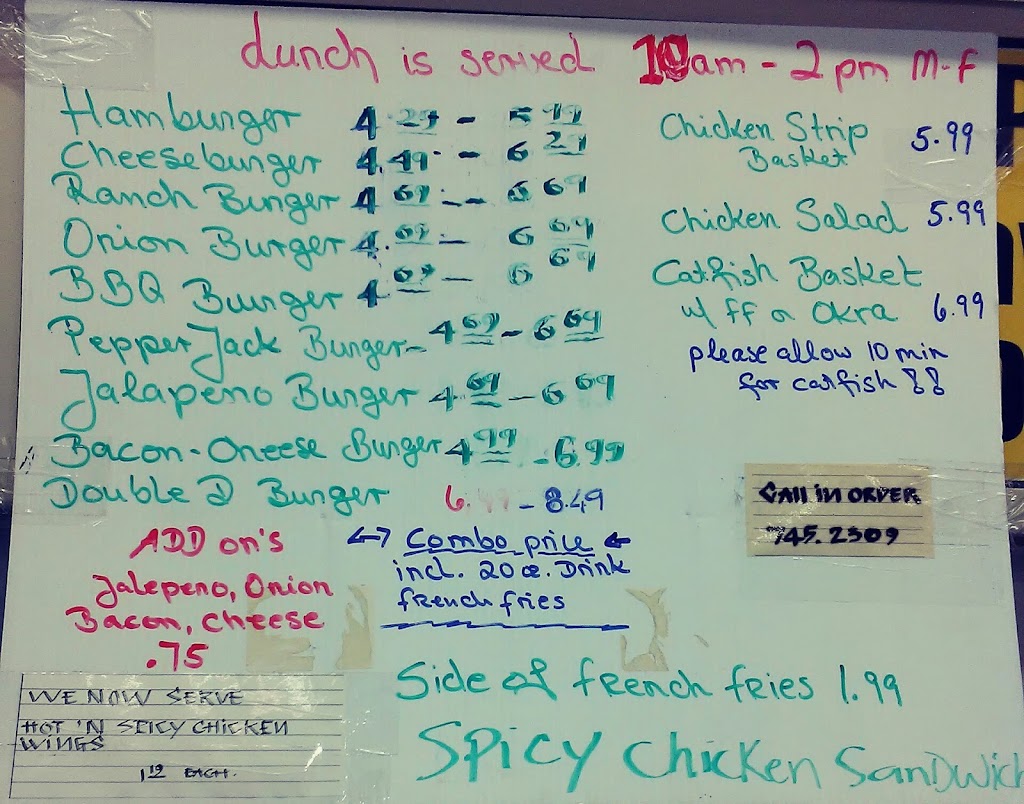 Lunch is served 10am - 2pm M-F
Hamburger 4.29 - 5.99
Cheeseburger 4.49 - 6.29
Ranch Burger 4.69 -- 6.69
Onion Burger 4.69 - 6.69
BBQ Burger 4.69 - 6.69
Pepper Jack Burger - 4.69 - 6.69
Jalapeno Burger - 4.69 - 6.69
Bacon-Cheese Burger 4.99 - 6.99
Double D Burger 6. - 8.49
Chicken Strip Basket 5.99
Chicken Salad 5.99
Catfish Basket
w/ FF or Okra 6.99
please allow 10 min
for catfish !!
Call in order
745.2309
ADD on's
Jalepeno, Onion
Bacon, Cheese
.75
Combo price
incl. 20 oz. Drink
french fries
We now serve
Hot 'n Spicy Chicken
Wings
1.19 each.
Side of french fries 1.99
Spicy Chicken Sandwich